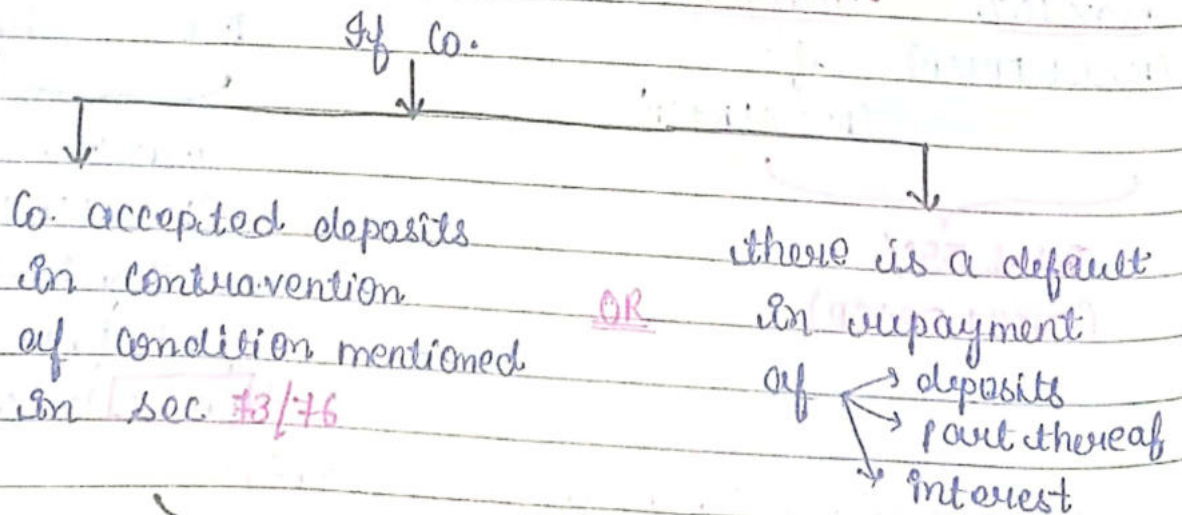 If Co.
Co. accepted deposits
in contravention
of condition mentioned
in sec 73/76
OR
there is a default
in repayment
of → deposits
→ part thereof
→ interest